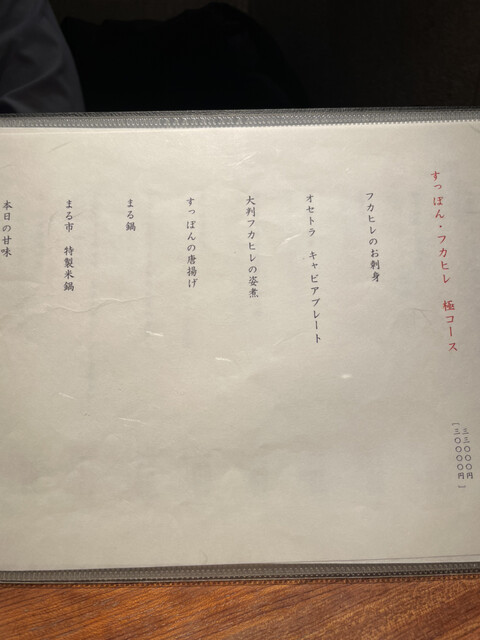 すっぽん・フカヒレ 極コース
三三〇〇〇円
[三〇〇〇〇円]
フカヒレのお刺身
オセトラ キャビアプレート
大判フカヒレの姿煮
すっぽんの唐揚げ
まる鍋
まる市 特製米鍋
本日の甘味